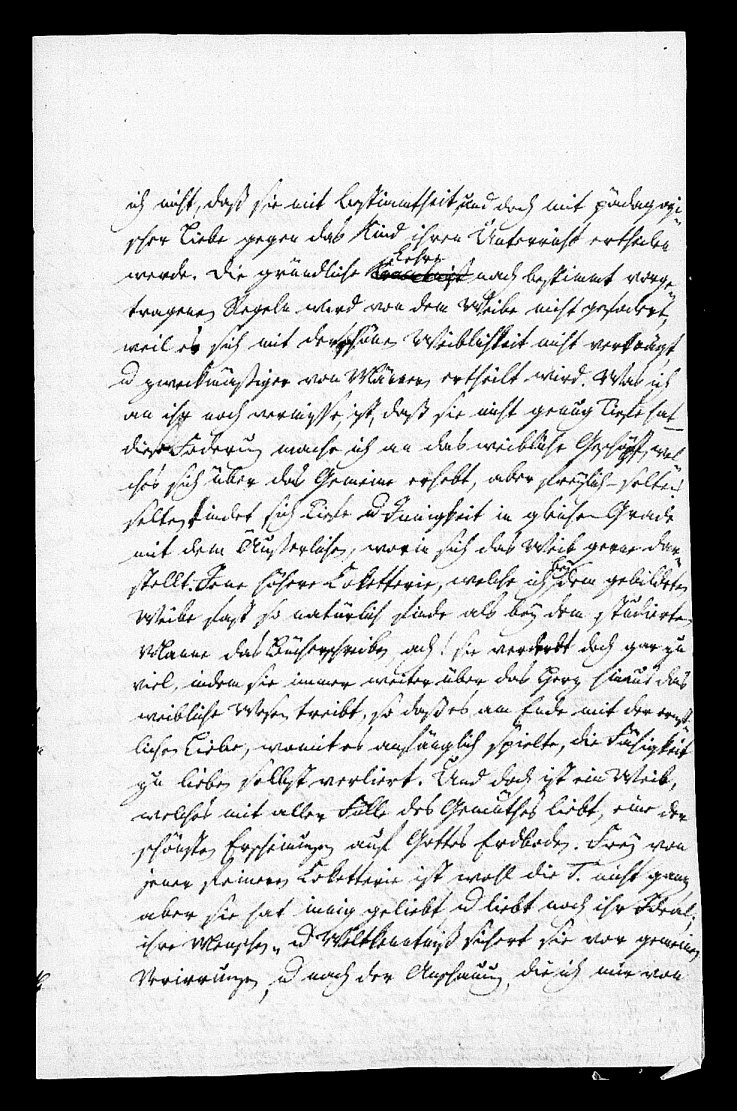 ich nicht, daß sie mit Bestimmtheit und doch mit pädagogi
scher Liebe gegen das Kind ihren Unterricht ertheilen
werde. Die gründliche Lehre nach bestimmt vorge
tragenen Regeln wird von dem Weibe nicht gefodert,
weil es sich mit der schönen Weiblichkeit nicht verträgt
u zweckmäßiger von Männern ertheilt wird. Was ich
an ihr noch vermisse, ist, daß sie nicht genug Tiefe hat
diese Foderung mache ich an das weibliche Geschöpf, wel
ches sich über das Gemeine erhebt, aber freylich selten
selten findet sich Tiefe u Innigkeit in gleichem Grade
mit dem Äußerlichen, worin sich das Weib gerne dar
stellt. Jene höhere Koketterie, welche ich bey dem gebildeten
Weibe fast so natürlich finde als bey dem studierten
Manne das Bücherschreiben, ach! sie verderbt doch gar zu
viel, indem sie immer weiter über das Herz hinaus das
weibliche Wesen treibt, so daß es am Ende mit der ernst
lichen Liebe, womit es anfänglich spielte, die Fähigkeit
zu lieben selbst verliert. Und doch ist ein Weib,
welches mit aller Fülle des Gemüthes liebt, eine der
schönsten Erscheinungen auf Gottes Erdboden. Frey von
jener feineren Koketterie ist wohl die T. nicht ganz
aber sie hat innig geliebt u liebt noch ihr Ideal;
ihre Menschen- u Weltkenntniß sichert sie vor gemeinen
Verirrungen, u nach der Anschauung, die ich mir von